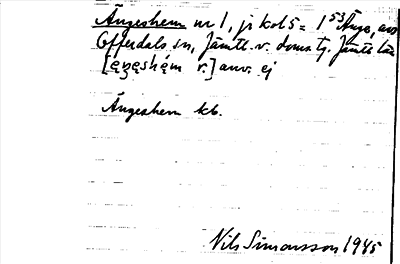 Ängeshem nr 1, jr kol 5 = 1⁵³ Änge, avs
Offerdals sn, Jämtl. v. doms. tg. Jämtl. län
[ęŋęshęm r.] anv. ej
Ängeshem kb.
Nils Simonsson 1945